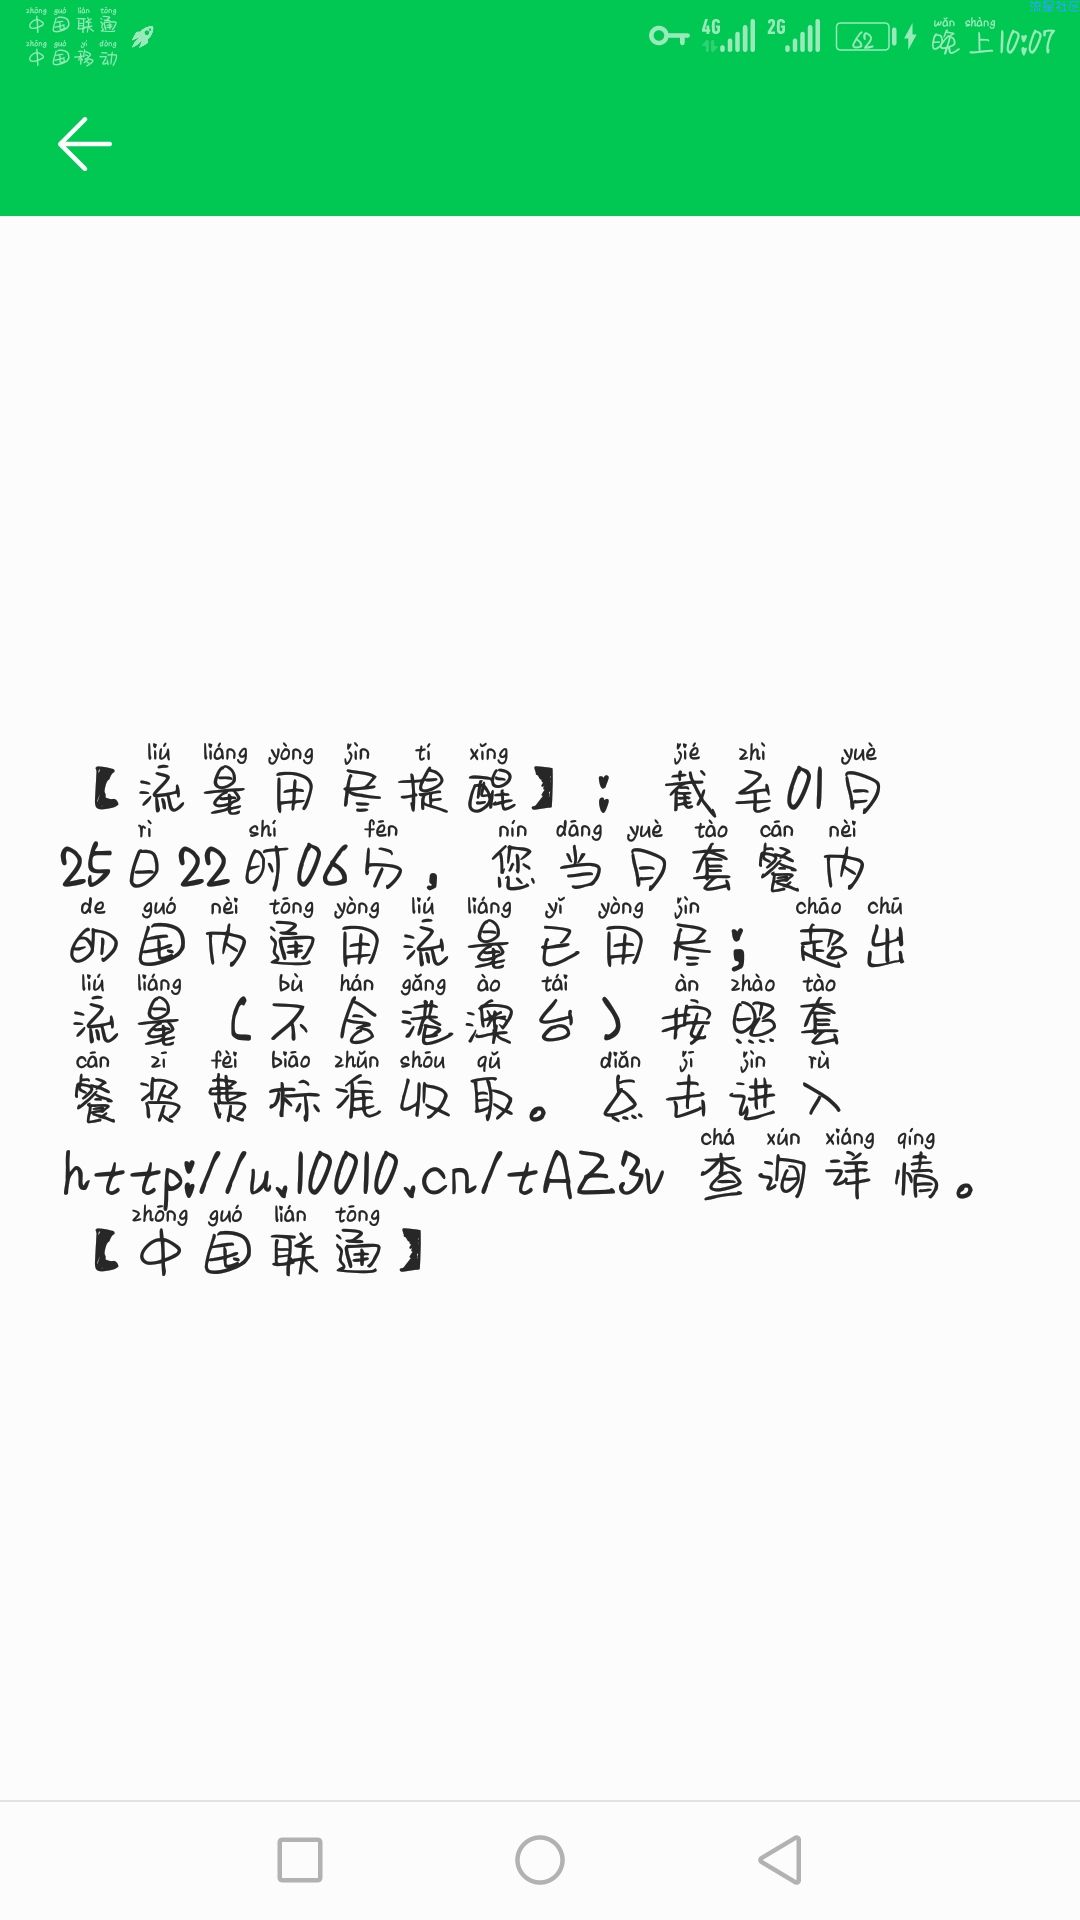 流星社区
zhōng guó lián tōng
中国联通
zhōng guó yí dòng
中国移动
4G 2G 62 wǎn shàng
晚上10:07
liú liáng yòng jìn tí xǐng jié zhì yuè
【流量用尽提醒】：截至01月
rì shí fēn nín dāng yuè tào cān nèi
25日22时06分，您当月套餐内
de guó nèi tōng yòng liú liáng yǐ yòng jìn chāo chū
的国内通用流量已用尽；超出
liú liáng bù hán gǎng ào tái àn zhào tào
流量（不含港澳台）按照套
cān zī fèi biāo zhǔn shōu qǔ diǎn jī jìn rù
餐资费标准收取。点击进入
chá xún xiáng qíng
http://u.10010.cn/tAZ3v 查询详情。
zhōng guó lián tōng
【中国联通】